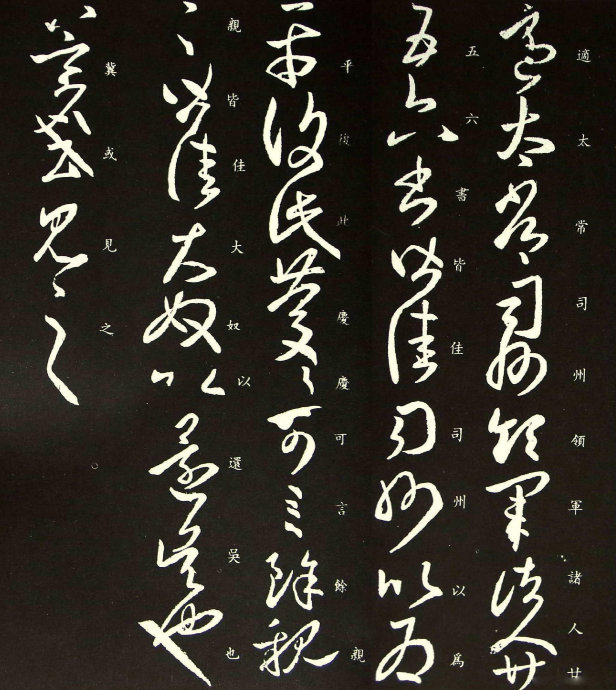 適太常司州領軍諸人廿
五六書皆佳司州以爲
平復此慶慶可言餘親
親皆佳大奴以還吳也
冀或見之